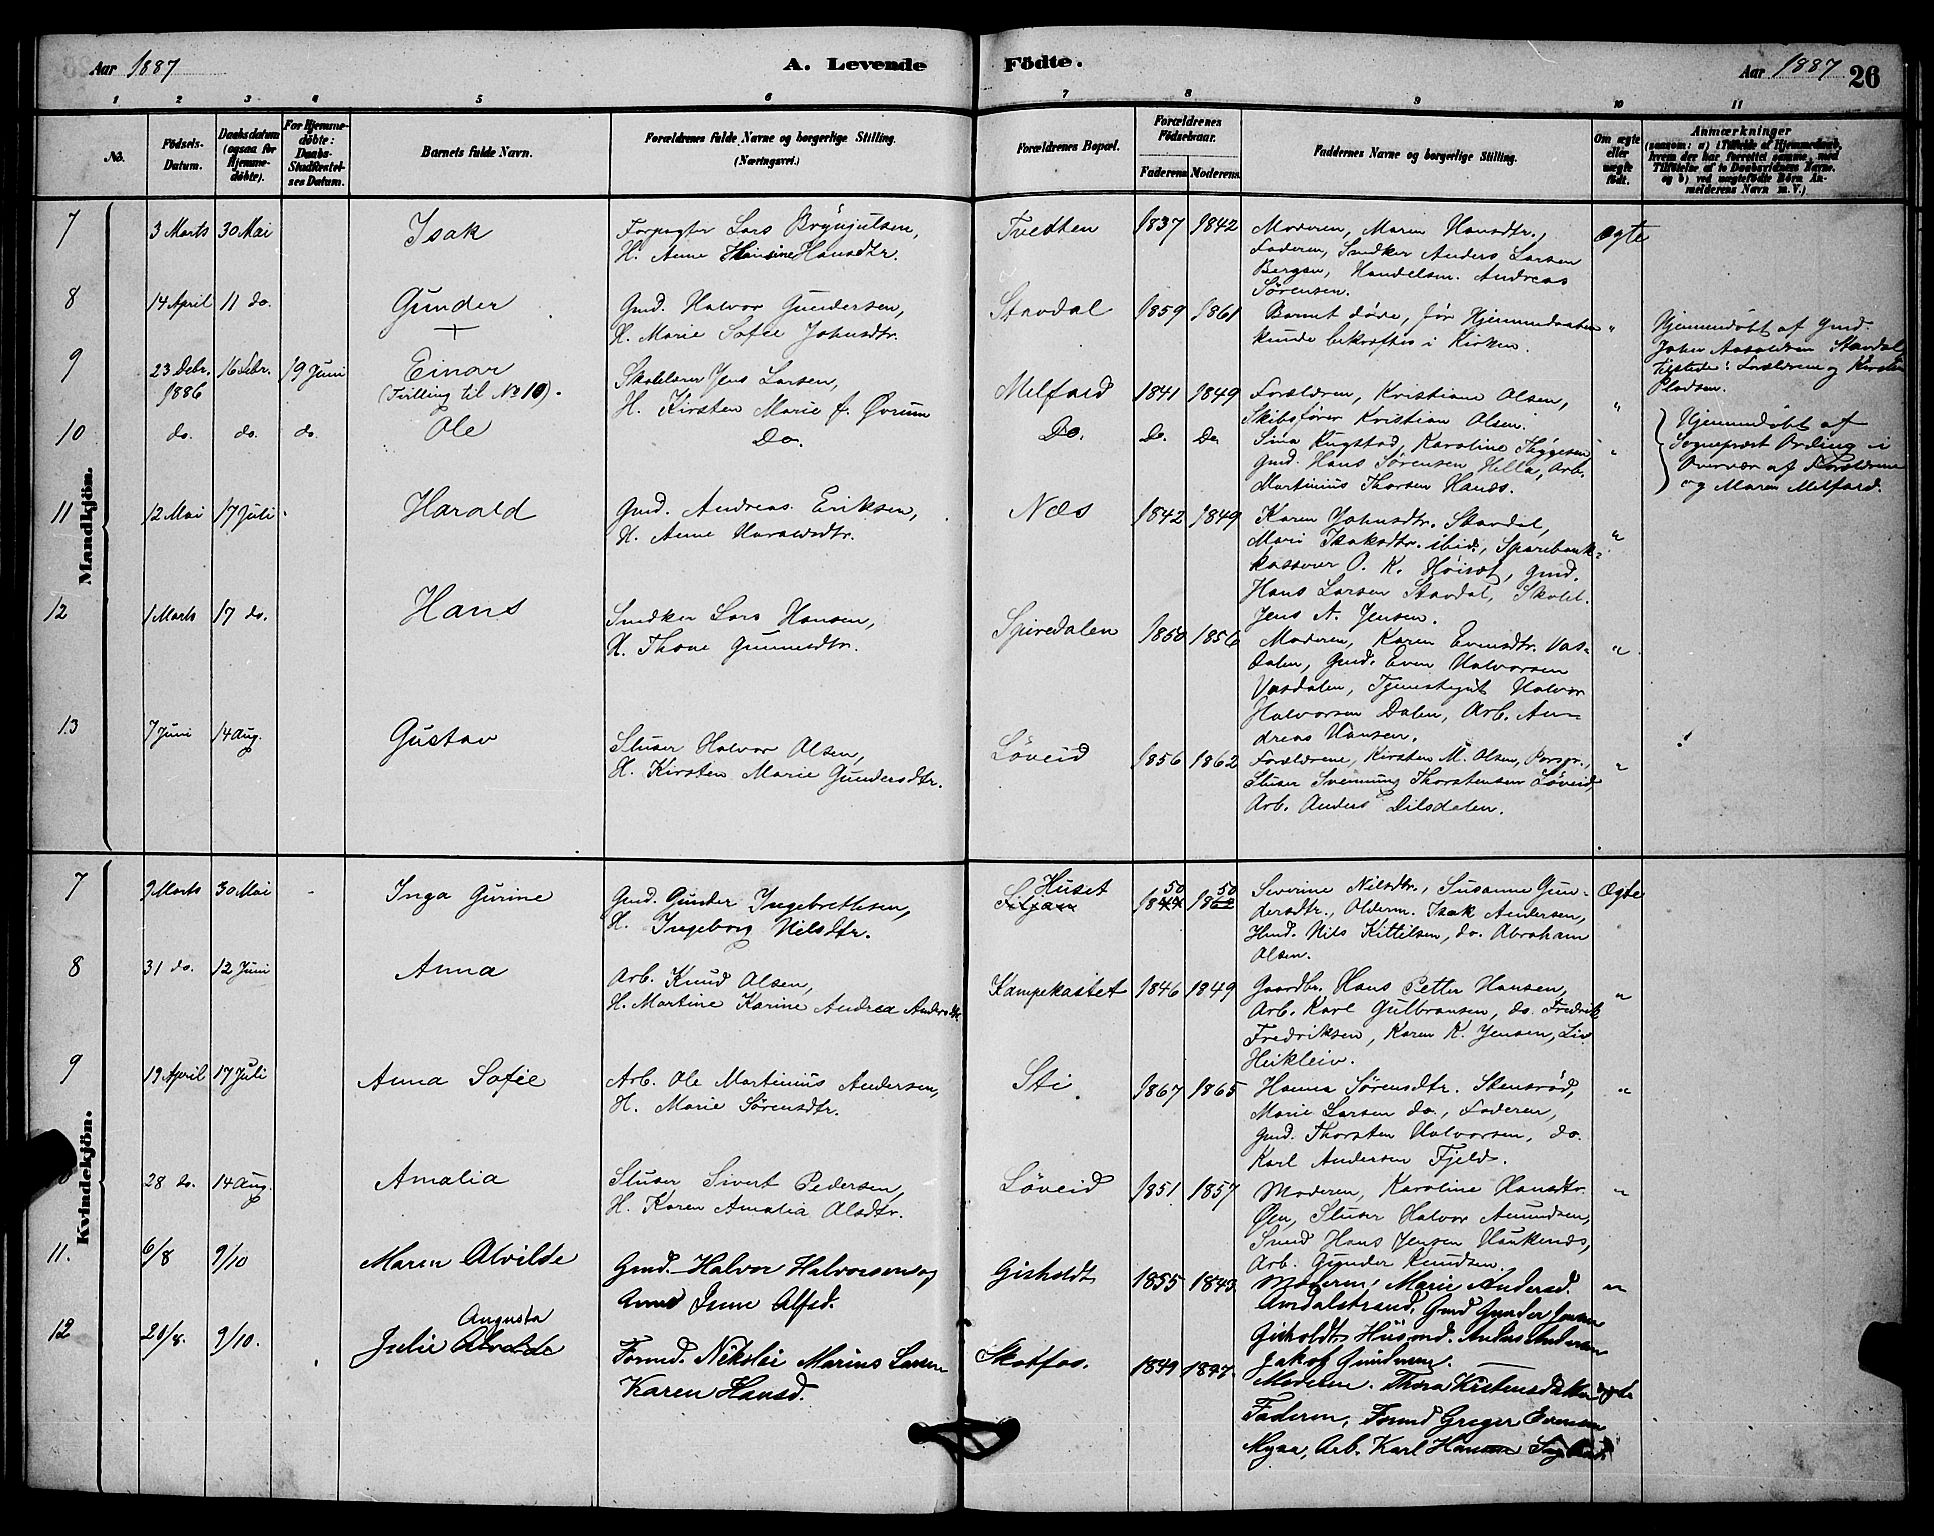 Aar 1887
A. Levende Födte.
Aar 1887 26
1 2 3 4 5 6 7 8 9 10 11
No.
Födsels-
Datum.
Daabsdatum
(ogsaa for
Hjemme-
döbte).
For Hjemme-
döbte:
Daabs-
Stadfæstel-
ses Datum.
Barnets fulde Navn.
Forældrenes fulde Navne og borgerlige Stilling.
(Næringsvei.)
Forældrenes Bopæl.
Forældrenes
Födselsaar.
Faderens Moderens
Faddernes Navne og borgerlige Stilling.
Om ægte
eller
uægte
født.
Anmærkninger
(saasom: a) i Tilfælde af Hjemmedaab,
hvem der har forrettet samme, med
Tilföielse af to Daabsvidners Navne.
og b) ved uægtefödte Börn An-
melderens Navn m. V.)
Mandkjön.
7 3 Marts 30 Mai Isak
Forpagter Lars Brynjulsen,
H. Anne Hansine Hansdtr.
Tvedten 1837 1842
Moderen, Maren Hansdtr.,
Faderen, Snedker Anders Larsen
Bergan, Handelsm. Andreas
Sørensen.
Ægte
8 14 April 11 do. Gunder
+
Gmd. Halvor Gundersen,
H. Marie Sofie Johnsdtr.
Stavdal 1859 1861
Barnet døde, før Hjemmedaaben
kunde bekræftes i Kirken.
"
Hjemmedøbt af Gmd.
John Stavdal
Tilstede: Forældrene og Kirsten
Pladsen.
9 23 Debr. 1886 16 Febr. 19 Juni Einar
(Tvilling til No 10).
Skolelærer Jens Larsen,
H. Kirsten Marie f. Øvrum
Melfald 1841 1849
Forældren, Kristiane Olsen,
Skibsfører Kristian Olsen.
"
10 do. do. do. Ole
Do.
Do. Do. Do.
Sina Rugstad, Karoline Thygesen,
Gmd. Hans Sørensen Hella, Arb.
Martinius Thorsen Haneś.
"
Hjemmedøbt af
Sogneprest Ording i
Overvær af Forældrene
og Maren Melfald.
11 12 Mai 17 Juli Harald
Gmd. Andreas Eriksen,
H. Anne Haraldsdtr.
Næs 1842 1849
Karen Johnsdtr. Stavdal,
Mari Isaksdtr. ibid., Sparebank-
kasserer O. K. Høisæt, Gmd.
Hans Larsen Stavdal, Skolel.
Jens A. Jensen.
"
12 1 Marts 17 do. Hans
Snedker Lars Hansen,
H. Thone Gunnesdtr.
Spiredalen 1850 1856
Moderen, Karen Evensdtr. Vas-
dalen, Gmd. Even Halvorsen
Vasdalen, Tjenestegut Halvor
Halvorsen Dalen, Arb. An-
dreas Hansen.
"
13 7 Juni 14 Aug. Gustav
Sluser Halvor Olsen,
H. Kirsten Marie Gundersdtr.
Løveid 1856 1862
Forældrene, Kirsten M. Olsen, Porsgr.,
Sluser Svennung Thorstensen Løveid,
Arb. Anders Dilsdalen.
"
Kvindekjön.
7 9 Marts 30 Mai Inga Gurine
Gmd. Gunder Ingebrethsen,
H. Ingeborg Nilsdtr.
Huset
50 50
Severine Nilsdtr., Susanne Gun-
dersdtr., Olderm. Isak Andersen,
Hmd. Nils Kittilsen, do. Abraham
Olsen.
Ægte
8 31 do. 12 Juni Anna
Arb. Knud Olsen,
H. Martine Karine Andrea Andersdtr.
Kampekastet 1846 1849
Gaardbr. Hans Petter Hansen,
Arb. Karl Gulbransen, do. Fredrik
Fredriksen, Karen K. Jensen, Liv
Heikleiv.
"
9 19 April 17 Juli Anna Sofie
Arb. Ole Martinius Andersen,
H. Marie Sørensdtr.
Sti 1867 1865
Hanna Sørensdtr. Stensrød,
Marie Larsen do., Faderen,
Gmd. Thorsten Halvorsen, do.
Karl Andersen Fjeld.
"
28 do. 14 Aug. Amalia
Sluser Sivert Pedersen,
H. Karen Amalia Olsdtr.
Løveid 1851 1857
Moderen, Karoline Hansdtr.
Øen, Sluser Halvor Amundsen,
Smed Hans Jensen Haukenæs,
Arb. Gunder Knudsen.
"
11. 6/8 9/10 Maren Alvilde
Gmd. Halvor Halvorsen og
Anne Alfsd.
Gisholdt 1855 1843
Moderen, Marie Andersd.
Amdalstrand, Gmd Gunder Jensen
Gisholdt, Husmd. Anders Andersen
Jakob
"
12 20/8. 9/10. Augusta
Julie Alvilde
Formd. Nikolai Marius Larsen
Karen Hansd.
Skotfos. 1849 1847.
Moderen. Thora
Faderen, Formd Greger Evensen
Myra, Arb. Karl Hansen
ægte